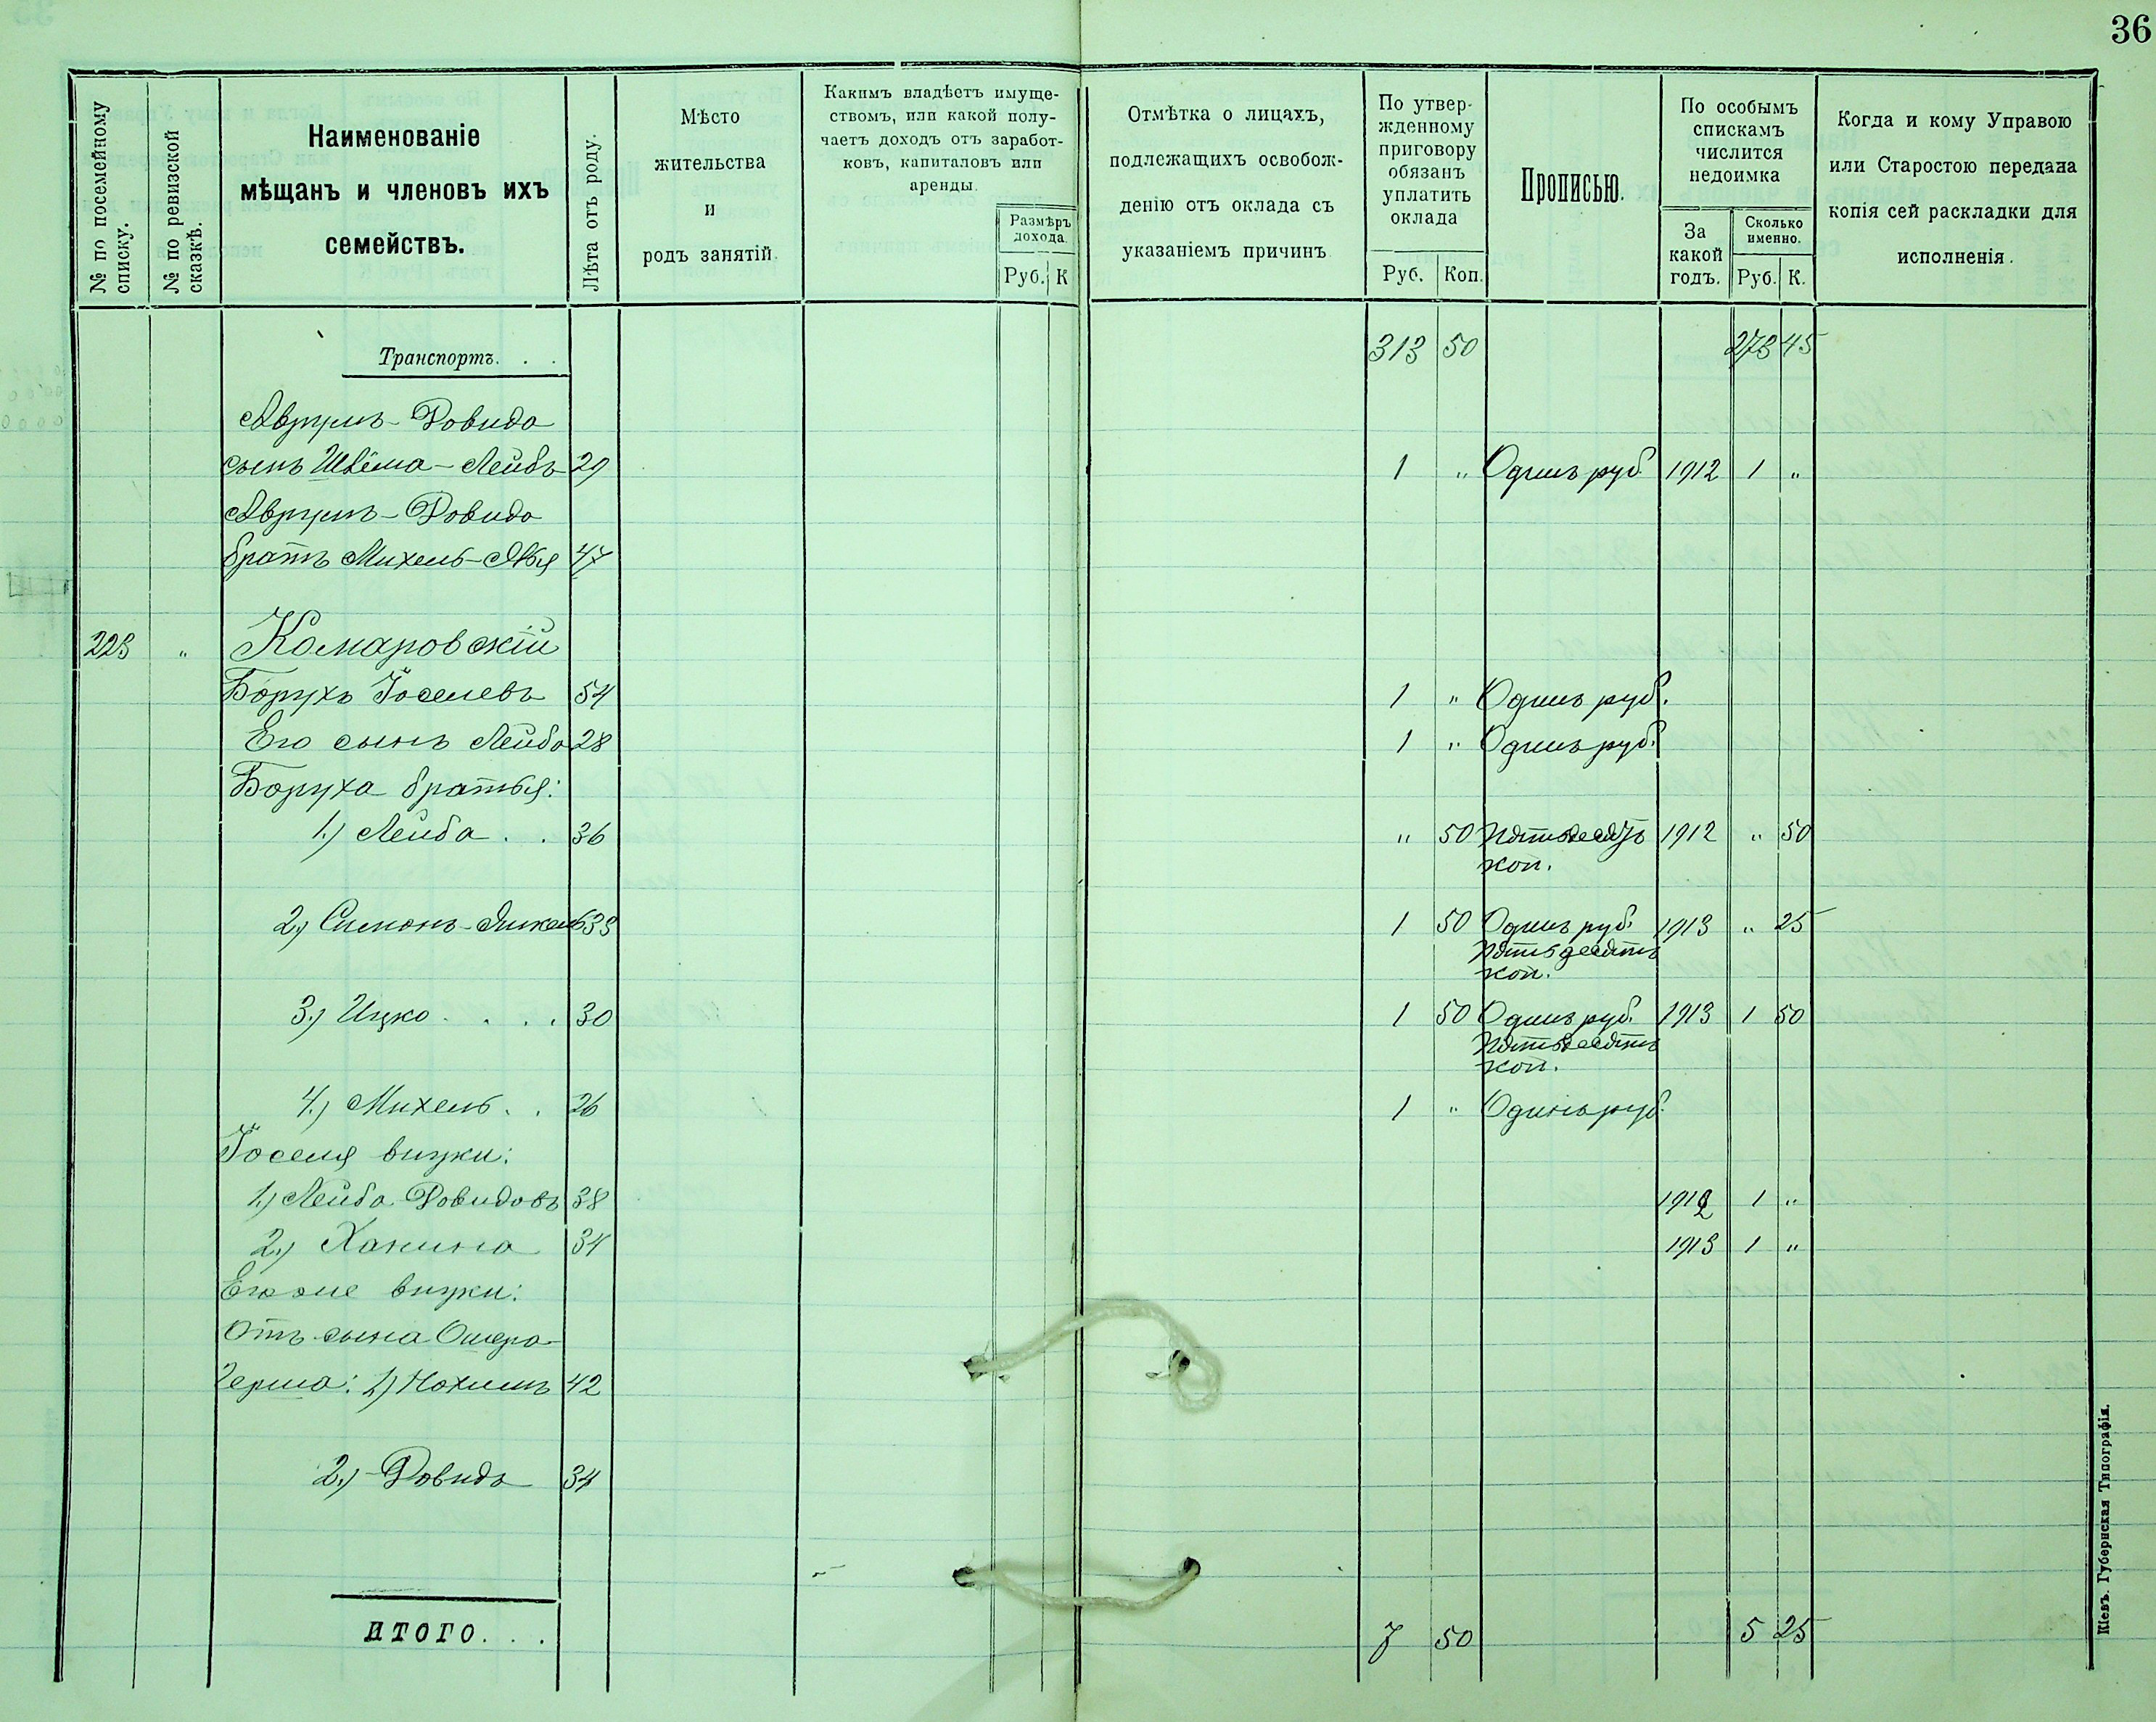 36
№ по посемейному списку.
№ по ревизской сказкѣ.
Наименованіе
мѣщанъ и членовъ ихъ
семействъ.
Лѣта отъ роду.
Мѣсто
жительства
и
родъ занятій.
Какимъ владѣетъ имуще-
ствомъ, или какой полу-
чаетъ доходъ отъ заработ-
ковъ, капиталовъ или
аренды.
Размѣръ
дохода.
Руб. К
Отмѣтка о лицахъ,
подлежащихъ освобож-
денію отъ оклада съ
указаніемъ причинъ
По утвер-
жденному
приговору
обязанъ
уплатить
оклада
Руб. Коп.
Прописью.
По особымъ
спискамъ
числится
недоимка
За
какой
годъ.
Сколько
именно.
Руб. К.
Когда и кому Управою
или Старостою передана
копія сей раскладки для
исполненія.
Транспортъ. . . 313 50 273 45
Аврумъ-Довида
сынъ Шлёма-Лейбъ 29 1 " Одинъ руб. 1912 1 "
Аврумъ-Довида
братъ Михель- 47
223 " Комаровскій
Борухъ Іоселевъ 54 1 " Одинъ руб.
Его сынъ Лейба 28 1 " Одинъ руб.
Боруха братья:
1.) Лейба . . 36 " 50 Пятьдесятъ 1912 " 50
коп.
2.) Симонъ-Янкель 33 1 50 Одинъ руб. 1913 " 25
Пятьдесятъ
коп.
3.) Ицко . . . . 30 1 50 Одинъ руб. 1913 1 50
Пятьдесятъ
коп.
4.) Михель . . 26 1 " Одинъ руб.
Іоселя внуки:
1.) Лейба Довидовъ 38 1912 1 "
2.) Ханина 34 1913 1 "
Его же внуки:
Отъ сына Ошера-
Герша: 1) Нохимъ 42
2.) Довидъ 34
ИТОГО. . . 7 50 5 25
Кіевъ. Губернская Типографія.